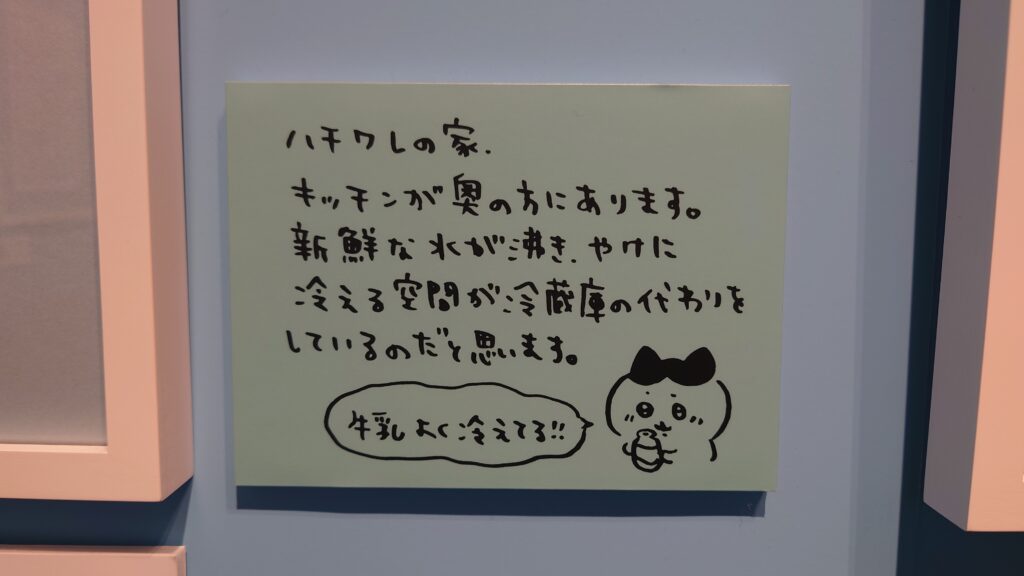 ハチワレの家.
キッチンが奥の方にあります。
新鮮な水が沸き、やけに
冷える空間が冷蔵庫の代わりを
しているのだと思います。
牛乳よく冷えてる!!